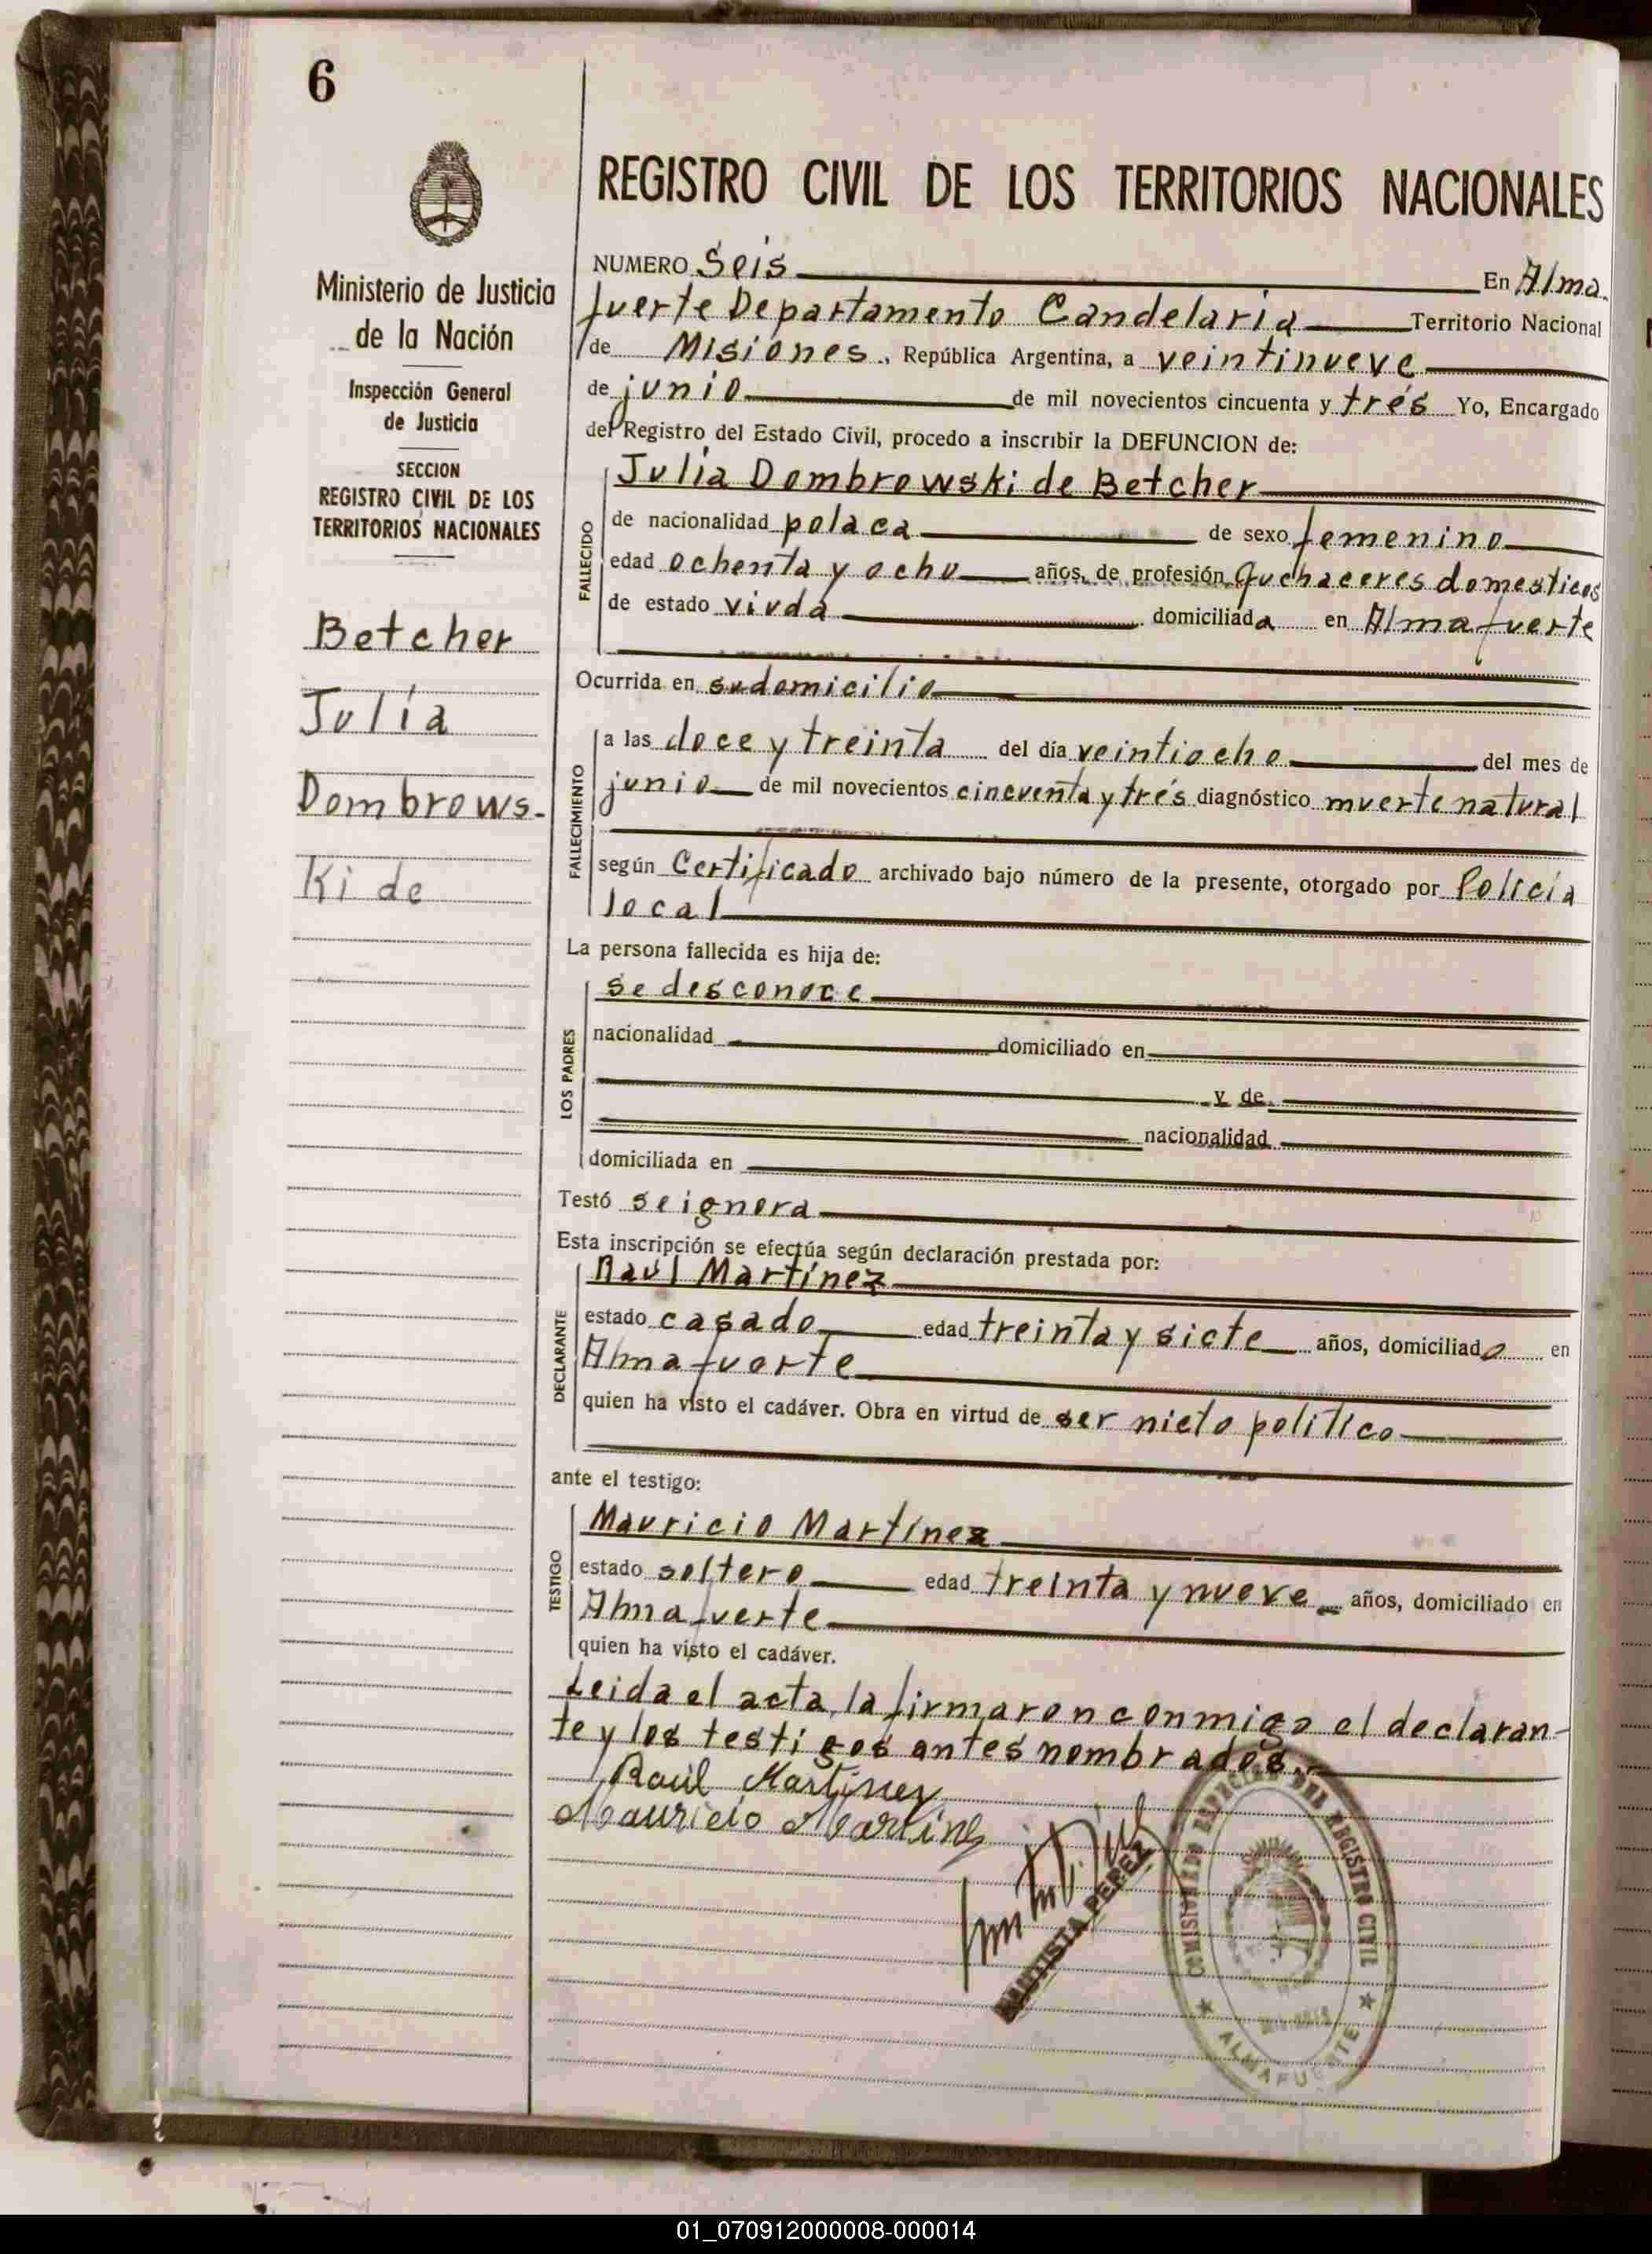 6
REGISTRO CIVIL DE LOS TERRITORIOS NACIONALES
Ministerio de Justicia
de la Nación
Inspección General
de Justicia
SECCION
REGISTRO CIVIL DE LOS
TERRITORIOS NACIONALES
Betcher
Julia
Dombrows-
Ki de
NUMERO Seis En Alma.
fuerte Departamento Candelaria Territorio Nacional
de Misiones., República Argentina, a veintinueve
de junio de mil novecientos cincuenta y trés Yo, Encargado
del Registro del Estado Civil, procedo a inscribir la DEFUNCION de:
FALLECIDO
Julia Dombrowski de Betcher
de nacionalidad polaca de sexo femenino
edad ochenta y ocho años, de profesión quehaceres domesticos
de estado viuda domiciliada en Almafuerte
Ocurrida en su domicilio
FALLECIMIENTO
a las doce y treinta del día veintiocho del mes de
junio de mil novecientos cincuenta y trés diagnóstico muerte natural
según Certificado archivado bajo número de la presente, otorgado por Policía
local
La persona fallecida es hija de:
LOS PADRES
se desconoce
nacionalidad domiciliado en
y de
nacionalidad
domiciliada en
Testó se ignora
Esta inscripción se efectúa según declaración prestada por:
DECLARANTE
Raul Martínez
estado casado edad treinta y siete años, domiciliado en
Almafuerte
quien ha visto el cadáver. Obra en virtud de ser nieto politico
ante el testigo:
TESTIGO
Mauricio Martínez
estado soltero edad treinta y nueve años, domiciliado en
Almafuerte
quien ha visto el cadáver.
Leida el acta, la firmaron conmigo el declaran-
te y los testigos antes nombrados.
Raúl Martinez
Mauricio Martinez
BAUTISTA PEREZ
REGISTRO CIVIL
ALMAFUERTE
01_070912000008-000014